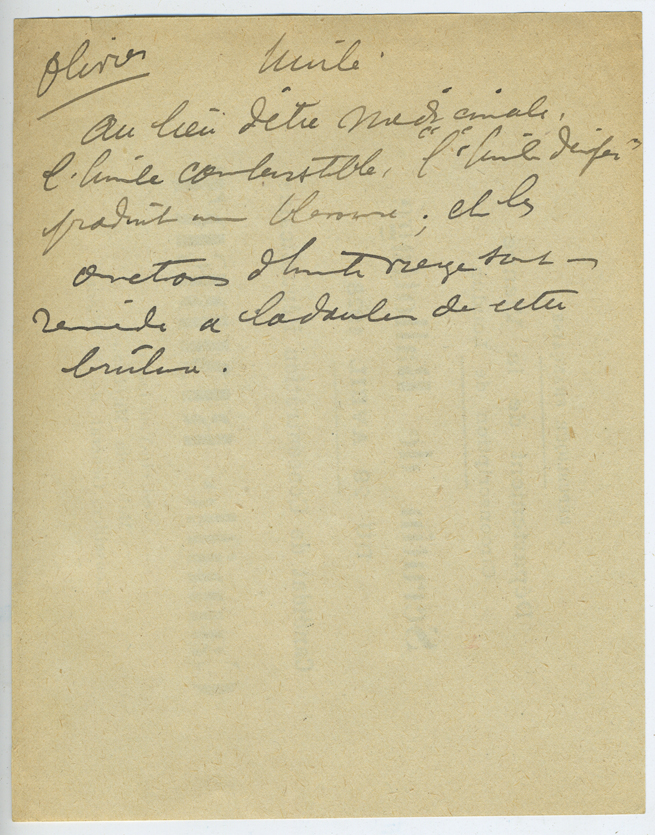 Olivier Huile.
Au lieu d'être médicinale,
l'huile combustible, l'"huile d'enfer"
produit une blessure ; et les
onctions d'huile vierge sont un
remède à la douleur de cette
brûlure.